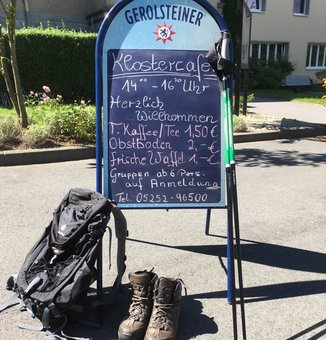 GEROLSTEINER
Klostercafé
14⁰⁰ - 16³⁰ Uhr
Herzlich
Willkommen
T. Kaffee/Tee 1,50€
Obstboden 2,-€
frische Waffel 1,-€
Gruppen ab 6 Pers.
auf Anmeldung
Tel. 05252-96500